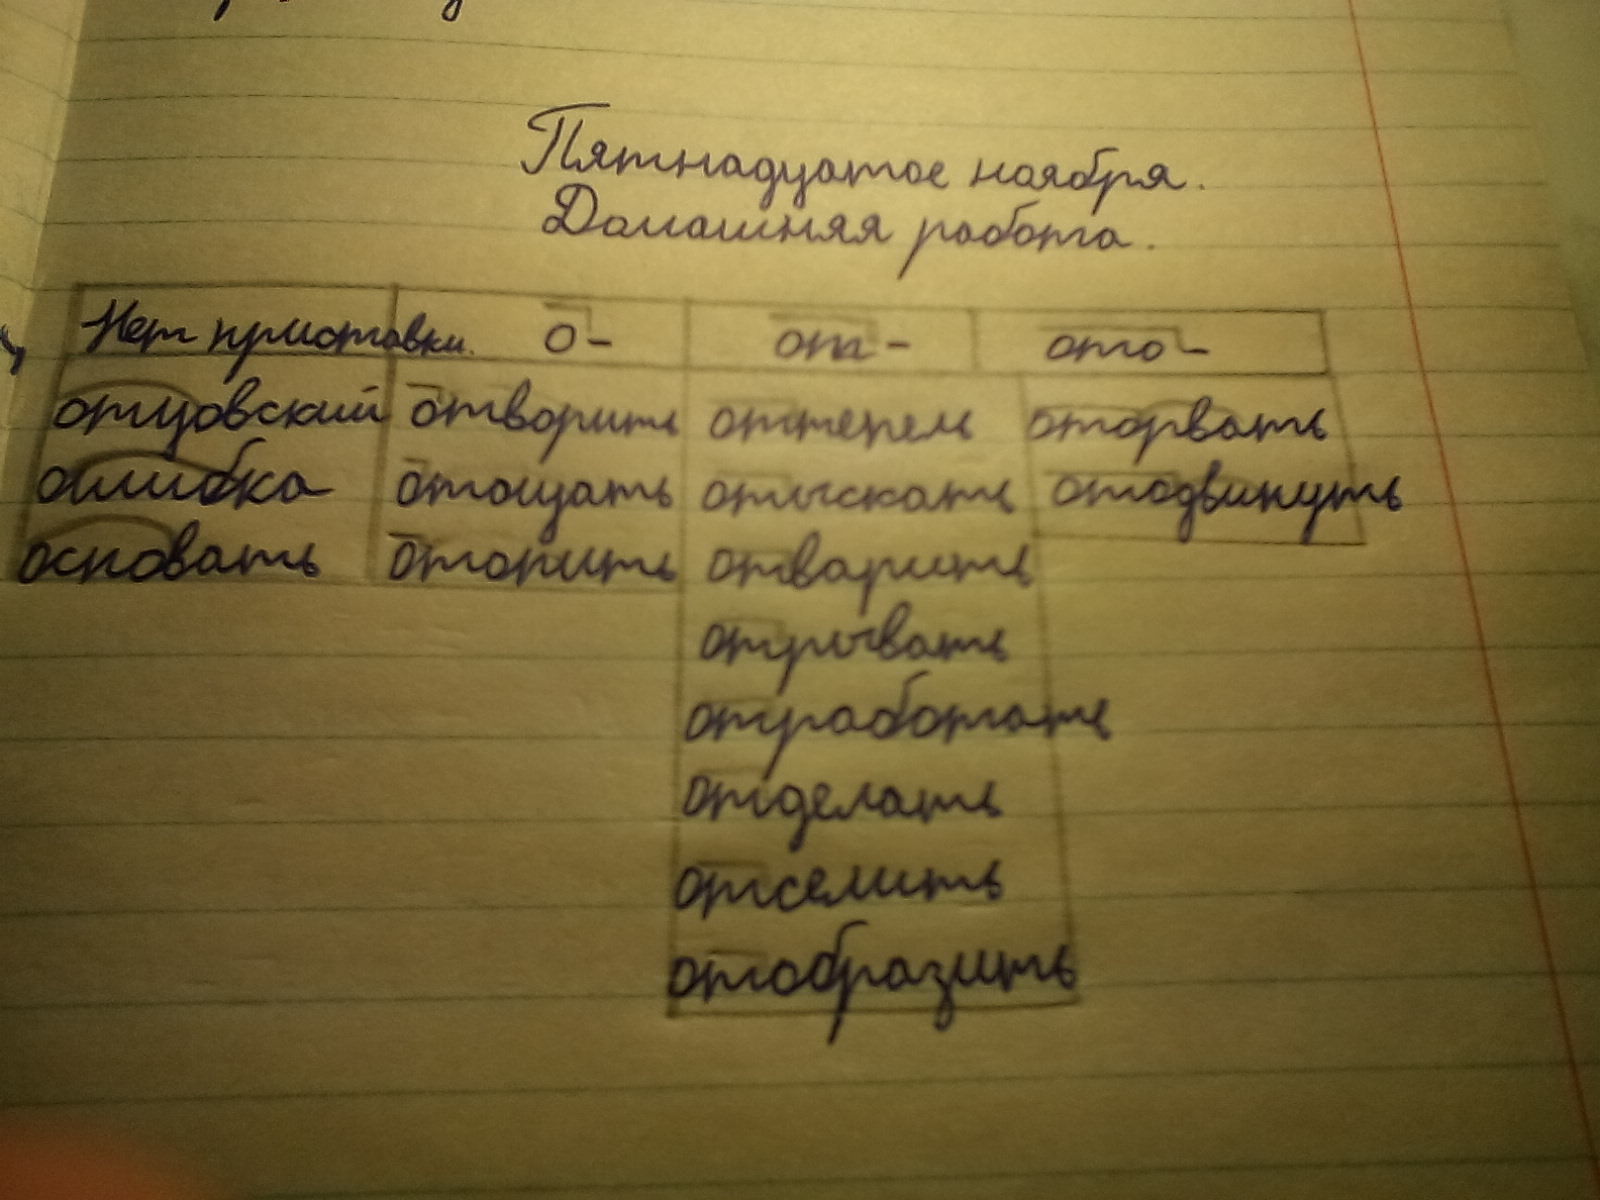 Пятнадцатое ноября.
Домашняя работа.
Нет приставки. о- от- ото-
отцовский отворить оттепель оторвать
ошибка отощать отыскать отодвинуть
основать отопить отварить
отрывать
отработать
отделать
отселить
отобразить